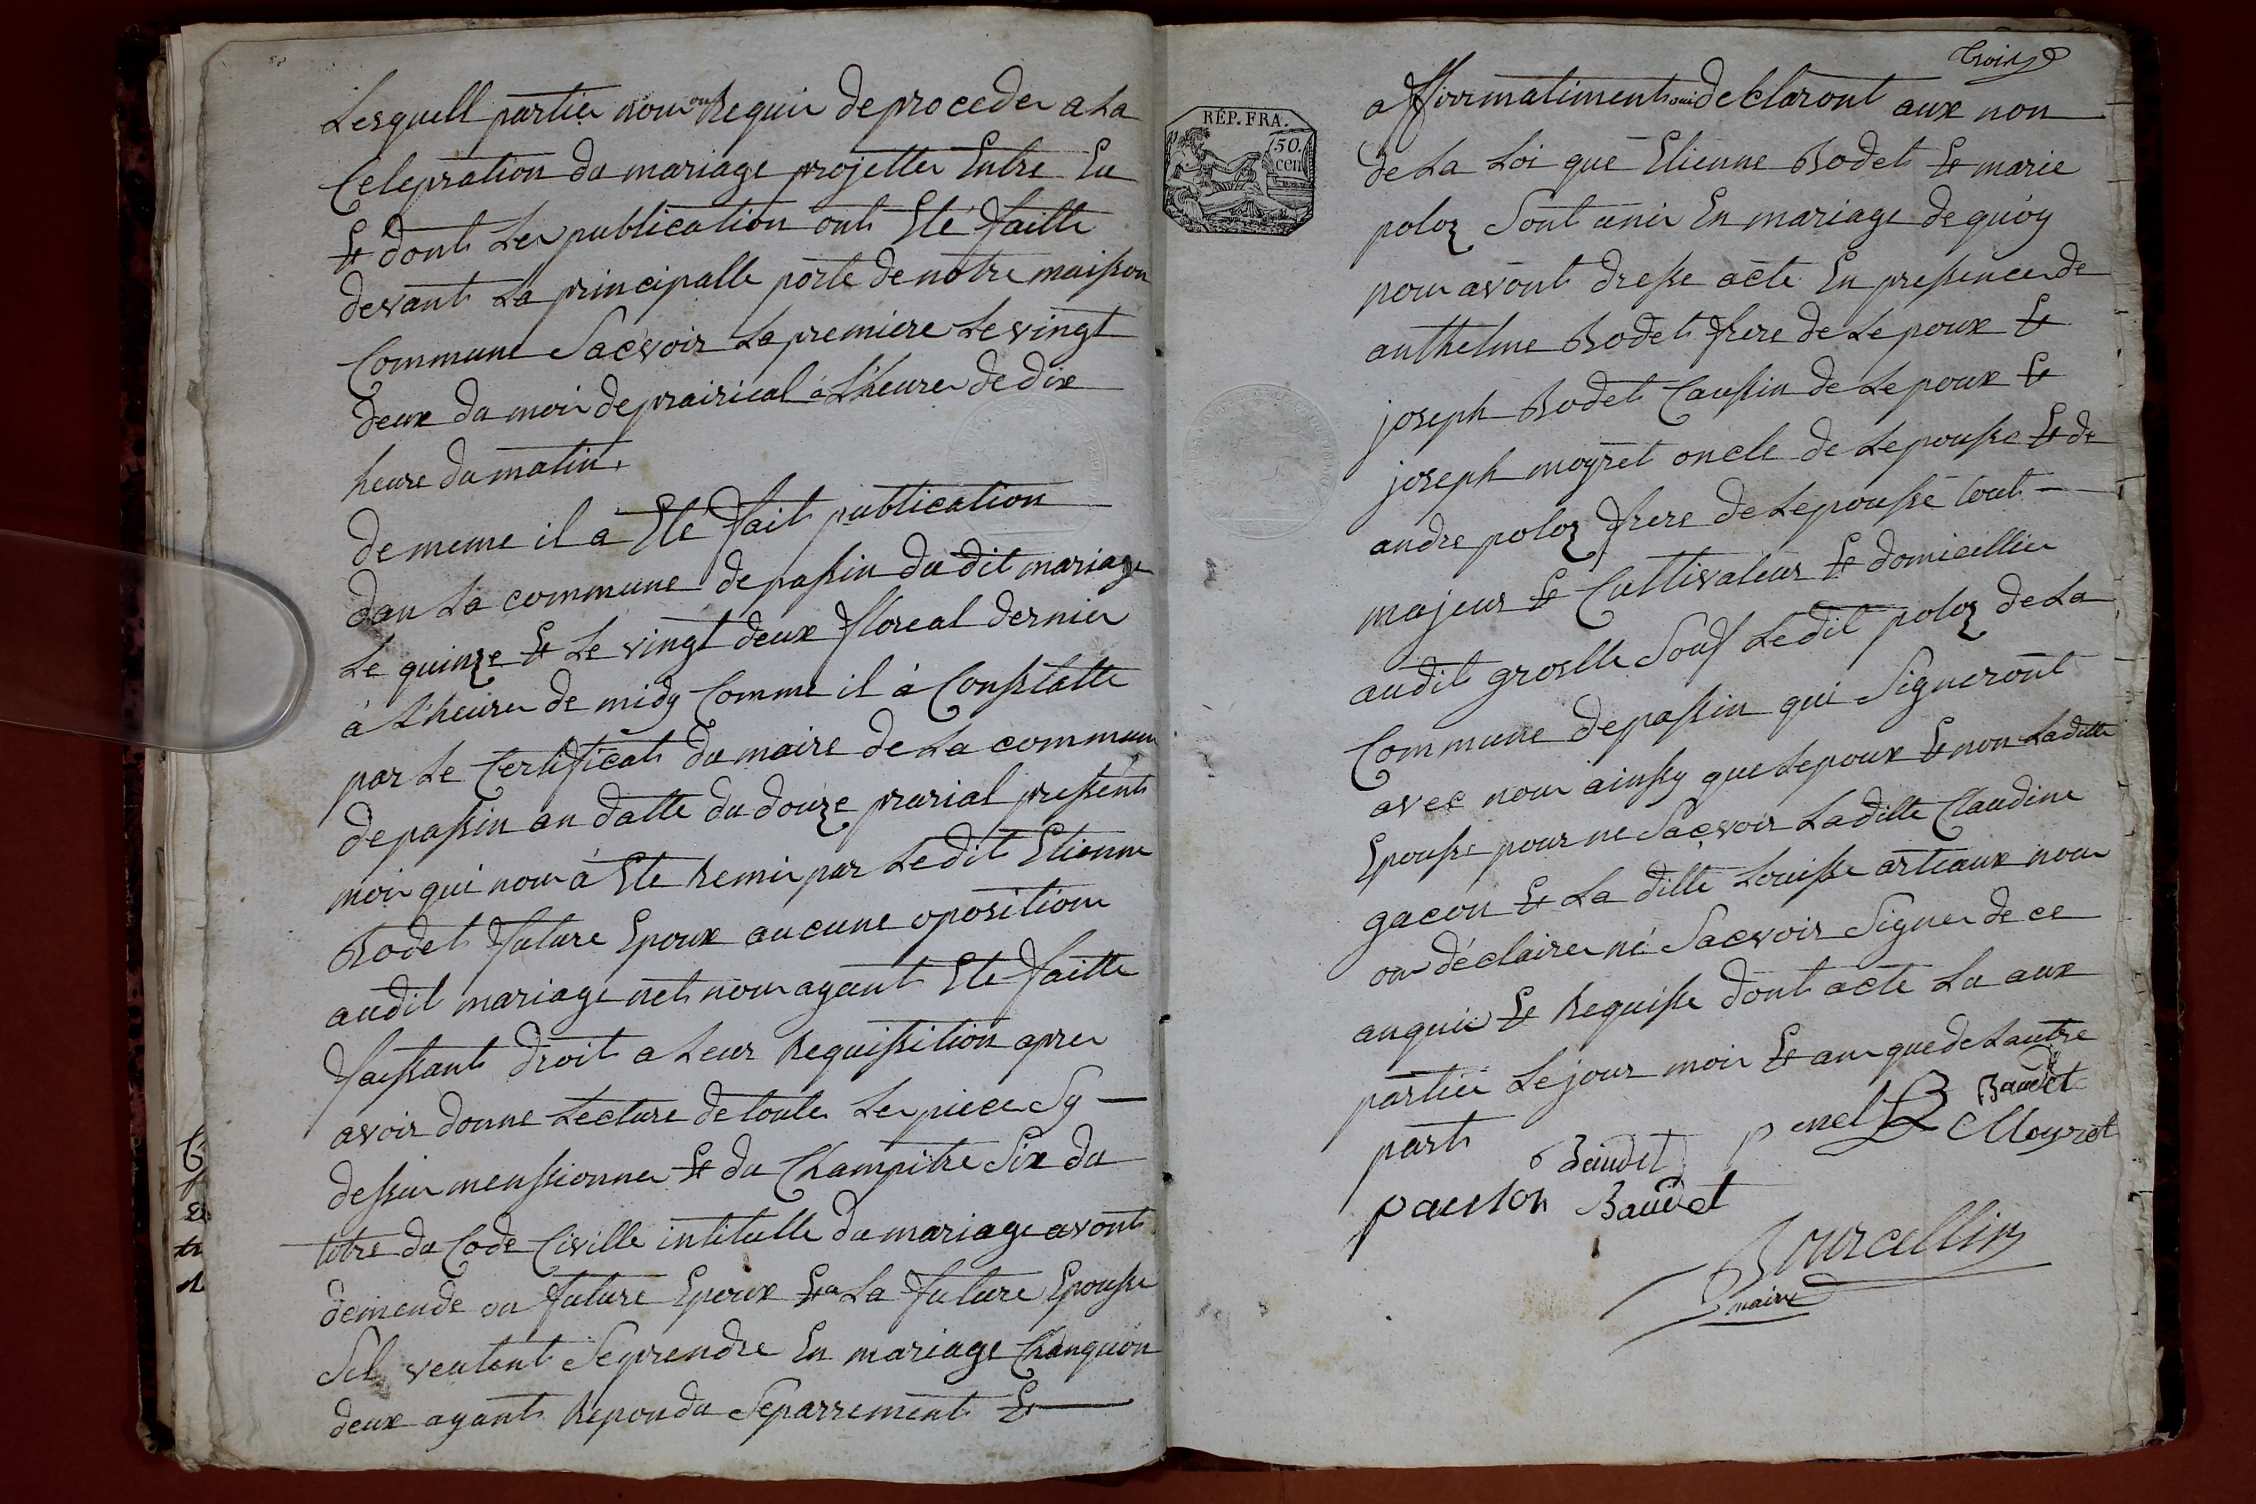 Lesquell partier nour on Requir de proceder a La
Celepration du mariage projetter Entre Eu
Et dont Ler publication ont Eté faitte
devant La principalle porte de notre maison
Commune Sacvoir La premiere Le vingt
deux du moir de prairical à L'heurer de dix
heure du matin.
de meme il a Eté fait publication
dan La commune de passin du dit mariage
Le quinze Et Le vingt deux floreal dernier
à L'heurer de midy Comme il à Constatte
par Le Certificat du maire de La commun
de passin an datte du douze prarial pressent
moir qui nour à Ete Remir par Ledit Etienne
Bodet future Epoux aucune oposition
audit mariage net nour ayant Ete faitte
faissant droit a Leur Requissition aprer
avoir donne Lecture de touter Ler piecer Sy
dessur menssionner Et du Champitre Six du
titre du Code Civille intitulle du mariage avont
demende au future Epoux Et a La future Epousse
Sil veutent Se prendre En mariage Chanquon
deux ayant Repondu Separrement Et
Trois
affirmatiment oui declaront aux non
de La Loi que Etienne Bodet Et marie
poloz Sont unir En mariage de quoy
nour avont dresse acte En pressencer de
anthelme Bodet frere de Lepoux Et
joseph Bodet Caussin de Lepoux Et
joseph moyret oncle de Lepousse Et de
andre poloz frere de Lepousse tout
majeur Et Cultivateur Et domicillier
audit groslle Souf Ledit poloz de La
Commune de passin qui Signeront
avec nour ainssy que Lepoux Et non Laditte
Epousse pour ne Sacvoir Laditte Claudine
gacon Et La ditte Louisse arteaux nour
on déclairer né Sacvoir Signer de ce
anquir Et Requisse dont acte Lu aux
partier Le jour moir Et an que de Lautre
part
RÉP. FRA.
50.
cen
Baudet
Baudet
Moyret
pauloz
Baudet
Bourcellin
maire